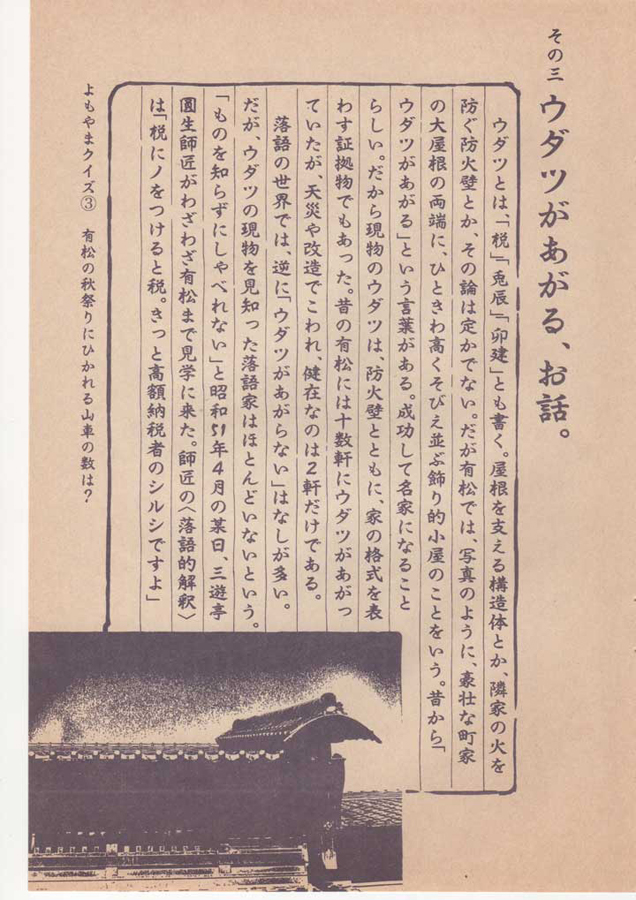 その三 ウダツがあがる、お話。
ウダツとは、「梲」「兎辰」「卯建」とも書く。屋根を支える構造体とか、隣家の火を
防ぐ防火壁とか、その論は定かでない。だが有松では、写真のように、豪壮な町家
の大屋根の両端に、ひときわ高くそびえ並ぶ飾り的小屋のことをいう。昔から「
ウダツがあがる」という言葉がある。成功して名家になること
らしい。だから現物のウダツは、防火壁とともに、家の格式を表
わす証拠物でもあった。昔の有松には十数軒にウダツがあがっ
ていたが、天災や改造でこわれ、健在なのは2軒だけである。
落語の世界では、逆に「ウダツがあがらない」はなしが多い。
だが、ウダツの現物を見知った落語家はほとんどいないという。
「ものを知らずにしゃべれない」と昭和51年4月の某日、三遊亭
圓生師匠がわざわざ有松まで見学に来た。師匠の〈落語的解釈〉
は「梲にノをつけると税。きっと高額納税者のシルシですよ」
よもやまクイズ③ 有松の秋祭りにひかれる山車の数は?